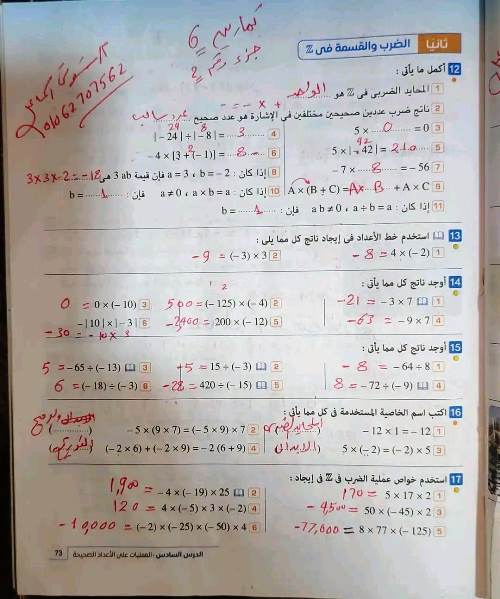 تمارين 6
جزء رقم 2
01062707562
ثانيًا الضرب والقسمة فى Z
12 أكمل ما يأتى :
1 المحايد الضربى فى Z هو الواحد
- = - × +
2 ناتج ضرب عددين صحيحين مختلفين فى الإشارة هو عدد صحيح سالب
3 5 × 0 = 0
4 |-24| ÷ |-8| = 3
24 8
5 5 × |-42| = 210
42
6 -4 × [3 + (-1)] = -8
2
7 -7 × 8 = -56
8 إذا كان : a = 3 ، b = -2 فإن قيمة 3 ab هى 3×3×-2=-18
9 A × (B + C) = A× B + A × C
10 إذا كان : a × b = a ، a ≠ 0 فإن : b = 1
11 إذا كان : a ÷ b = a ، a b ≠ 0 فإن : b = 1
13 استخدم خط الأعداد فى إيجاد ناتج كل مما يلى :
1 4 × (-2) = -8
2 (-3) × 3 = -9
14 أوجد ناتج كل مما يأتى :
1 -3 × 7 = -21
2 (-125) × (-4) = 500
1 2
3 0 × (-10) = 0
4 -9 × 7 = -63
5 200 × (-12) = -2400
6 -|10| × |-3| = -10×3 = -30
15 أوجد ناتج كل مما يأتى :
1 -64 ÷ 8 = -8
2 15 ÷ (-3) = +5
3 -65 ÷ (-13) = 5
4 -72 ÷ (-9) = 8
5 420 ÷ (-15) = -28
6 (-18) ÷ (-3) = 6
16 اكتب اسم الخاصية المستخدمة فى كل مما يأتى :
1 -12 × 1 = -12
2 -5 × (9 × 7) = (-5 × 9) × 7
3 5 × (-2) = (-2) × 5 (الابدال)
4 (-2 × 6) + (-2 × 9) = -2 (6 + 9) (التوزيع)
17 استخدم خواص عملية الضرب فى Z فى إيجاد :
1 5 × 17 × 2 = 170
2 -4 × (-19) × 25 = 1,900
3 50 × (-45) × 2 = -4,500
4 4 × (-5) × 3 × (-2) = 120
5 8 × 77 × (-125) = -77,000
6 (-2) × (-25) × (-50) × 4 = -10,000
الدرس السادس : العمليات على الأعداد الصحيحة 73